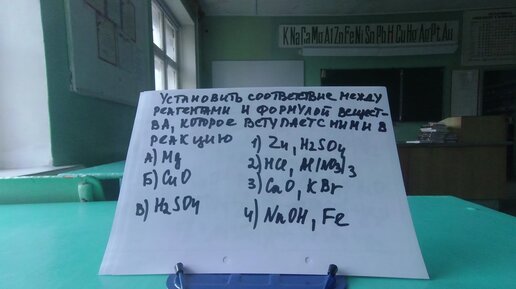 K Na Ca Mg Al Zn Fe Ni Sn Pb H Cu Hg Ag Pt Au
УСТАНОВИТЬ СООТВЕТСТВИЕ МЕЖДУ
РЕАГЕНТАМИ И ФОРМУЛОЙ ВЕЩЕСТ-
ВА, КОТОРОЕ ВСТУПАЕТ С НИМИ В
РЕАКЦИЮ
А) Mg
Б) CuO
В) H2SO4
1) Zn, H2SO4
2) HCl, Al(NO3)3
3) CaO, KBr
4) NaOH, Fe